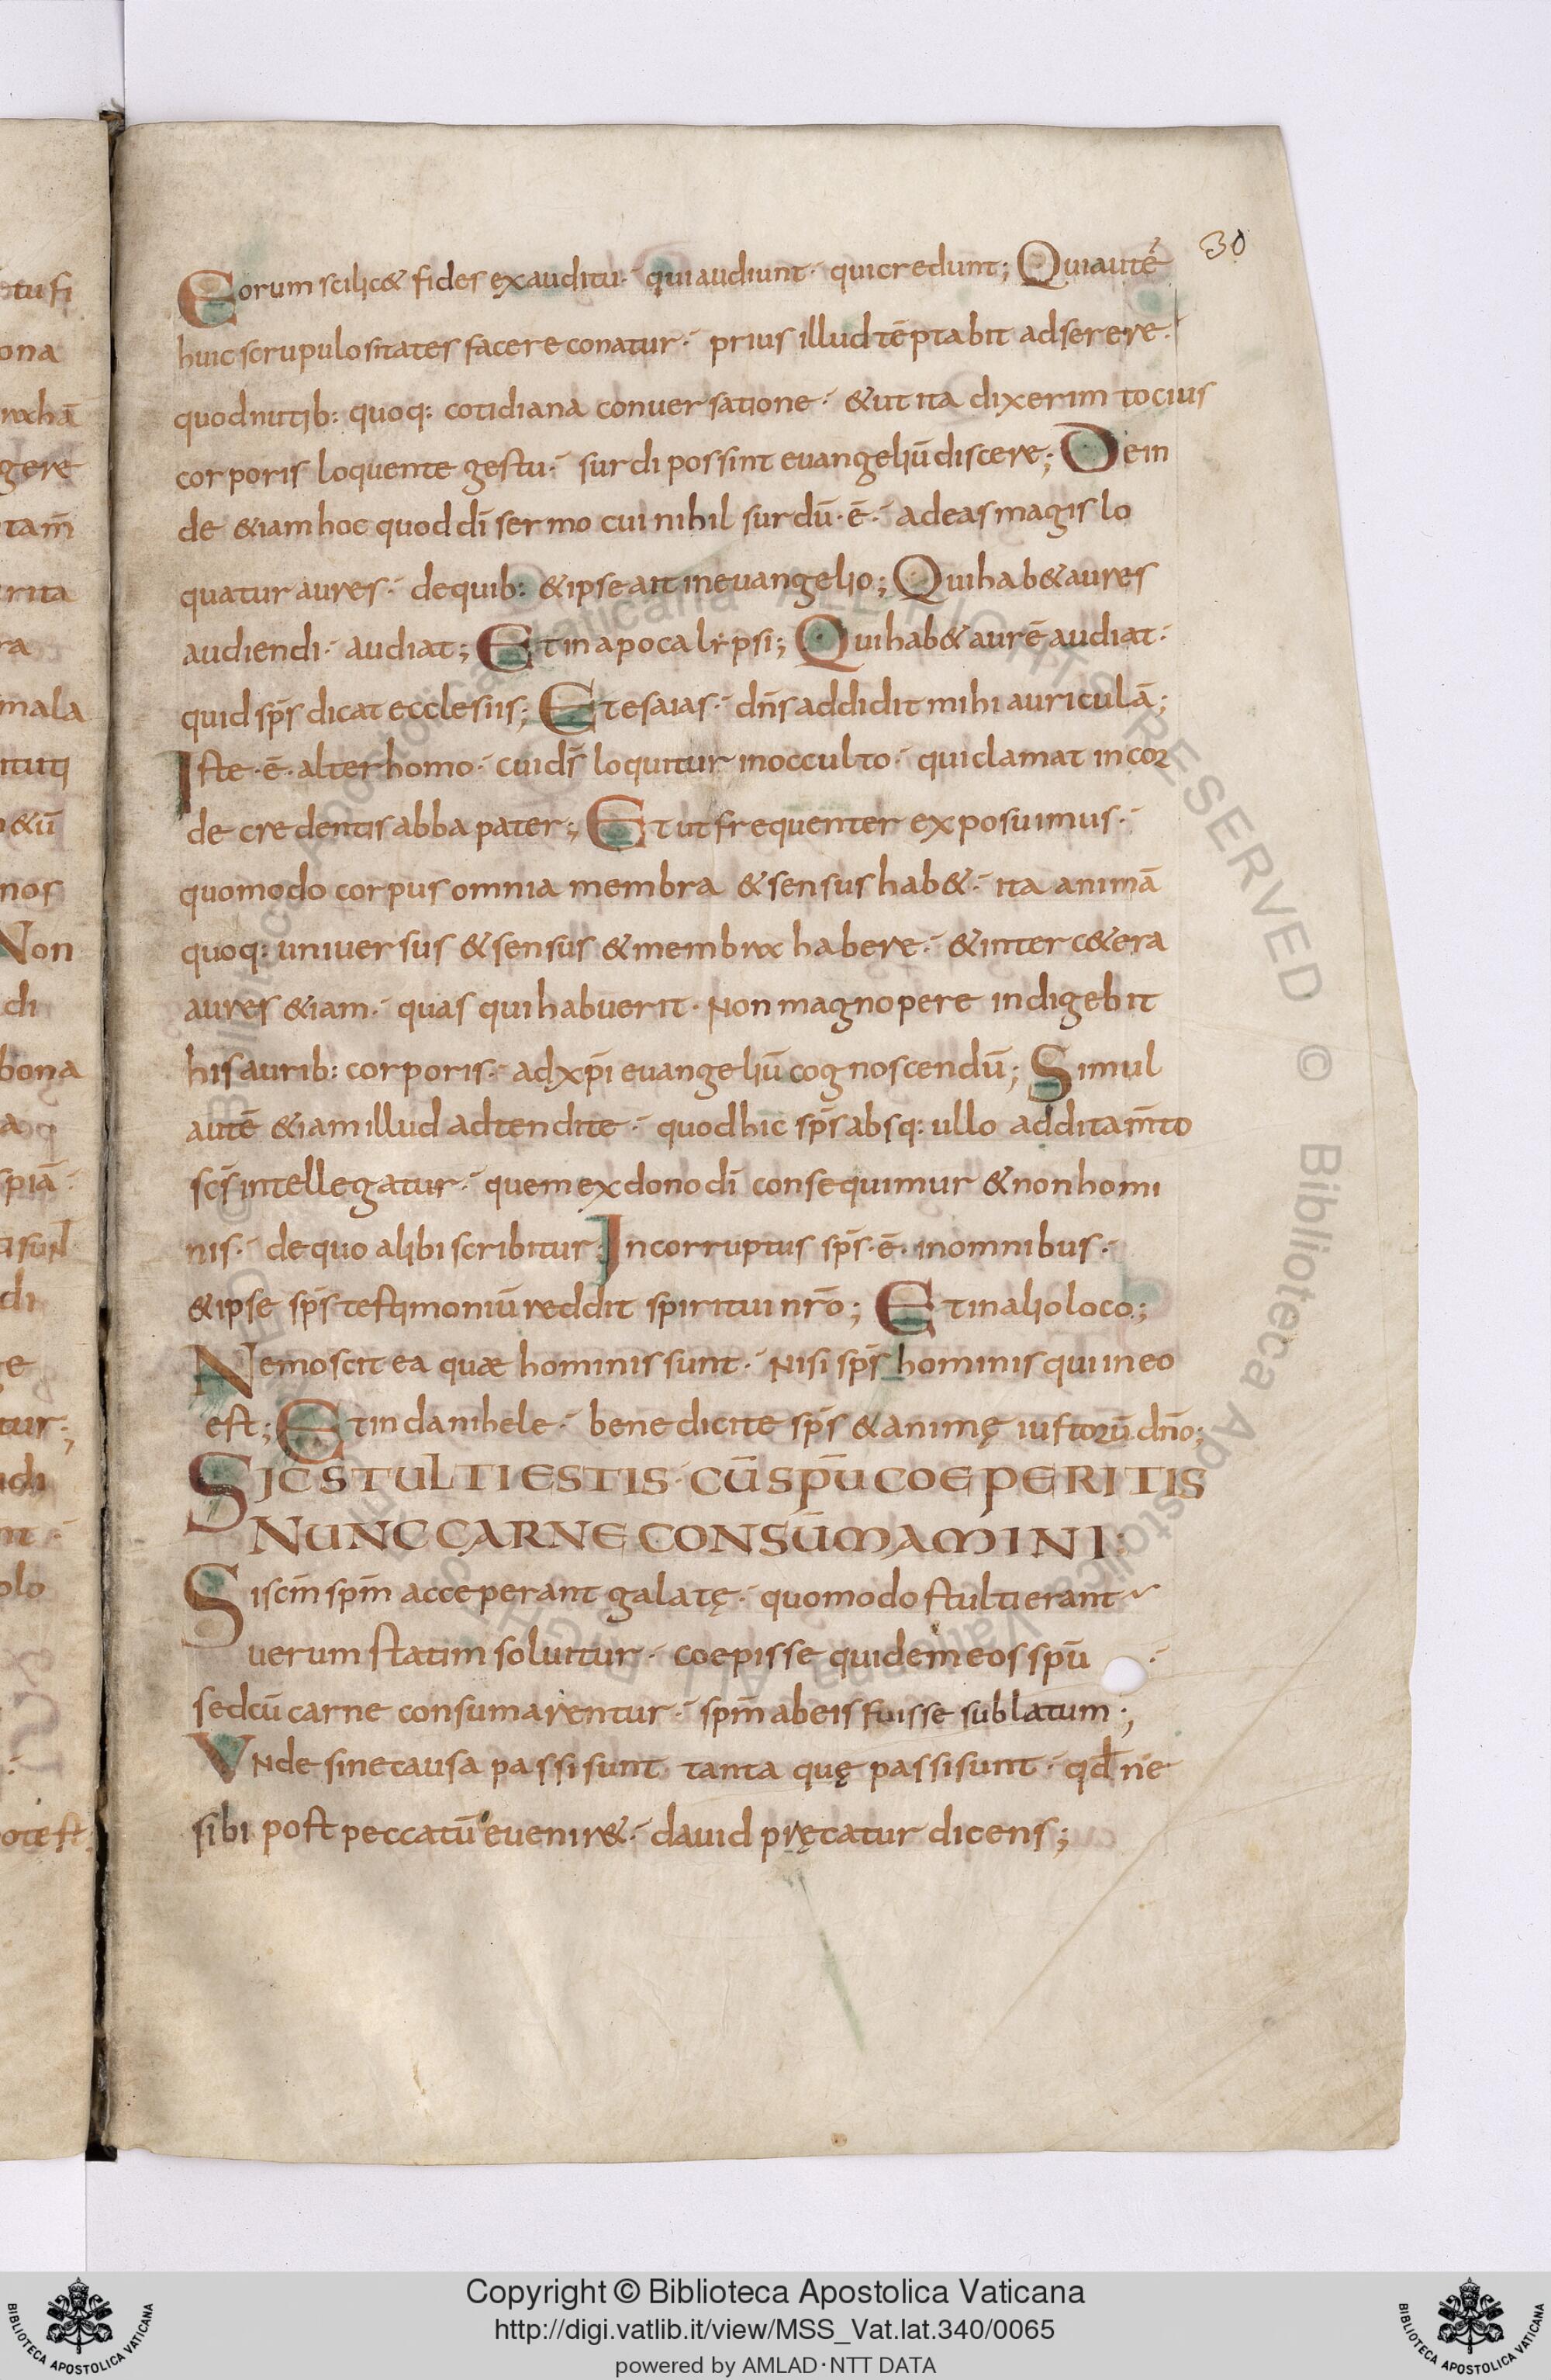 30
Eorum scilic& fides exauditu· quiaudiunt· quicredunt; Quiautē
huic scrupulositates facere conatur· prius illud tēptabit adserere·
quod nutib: quoq: cotidiana conuersatione· &ut ita dixerim tocius
corporis loquente gestu· surdi possint euangeliū discere; Dein
de &iam hoc quod dī sermo cui nihil surdū·ē· ad eas magis lo
quatur aures· dequib: &ipse ait ineuangelio; Qui hab& aures
audiendi· audiat; Et in apocalẏpsi; Qui hab& aurē audiat·
quid sp̄s dicat ecclesiis; Et esaias· dn̄s addidit mihi auriculā;
Iste·ē·alter homo· cui dī loquitur inocculto· qui clamat in cor
de credentis abba pater; Et ut frequenter exposuimus·
quomodo corpus omnia membra &sensus hab&· ita animā
quoq: uniuersus &sensus &membra habere· &inter c&era
aures &iam· quas qui habuerit· Non magnopere indigebit
his aurib: corporis· ad xp̄i euangeliū cognoscendū; Simul
autē &iam illud adtendite· quod hic sp̄s absq: ullo additam̄to
sc̄s intellegatur· quem ex dono dī consequimur &non homi
nis· dequo alibi scribitur; Incorruptus sp̄s·ē· inomnibus·
&ipse sp̄s testimoniū reddit spiritui nr̄o; Et in alio loco;
Nemo scit ea quæ hominis sunt· Nisi sp̄s hominis qui in eo
est; Et in danihele· benedicite sp̄s &animę iustorū dn̄o;
SIC STULTI ESTIS· CŪ SPŪ COEPERITIS
NUNC CARNE CONSŪMAMINI:
Si scm̄ spm̄ acceperant galatę· quomodo stulti erant
uerum statim soluitur· coepisse quidem eos spū
sed cū carne consumarentur· spm̄ abeis fuisse sublatum;
VNde sine causa passi sunt tanta quę passi sunt· qd̄ ne
sibi post peccatū euenir&· dauid pręcatur dicens;
tufi
ona
gere
tam̄
rita
ra
mala
ituti
&ū
nos
Non
di
bona
spiā
di
tur;
olo
Copyright © Biblioteca Apostolica Vaticana
http://digi.vatlib.it/view/MSS_Vat.lat.340/0065
powered by AMLAD·NTT DATA
BIBLIOTECA APOSTOLICA VATICANA
BIBLIOTECA APOSTOLICA VATICANA